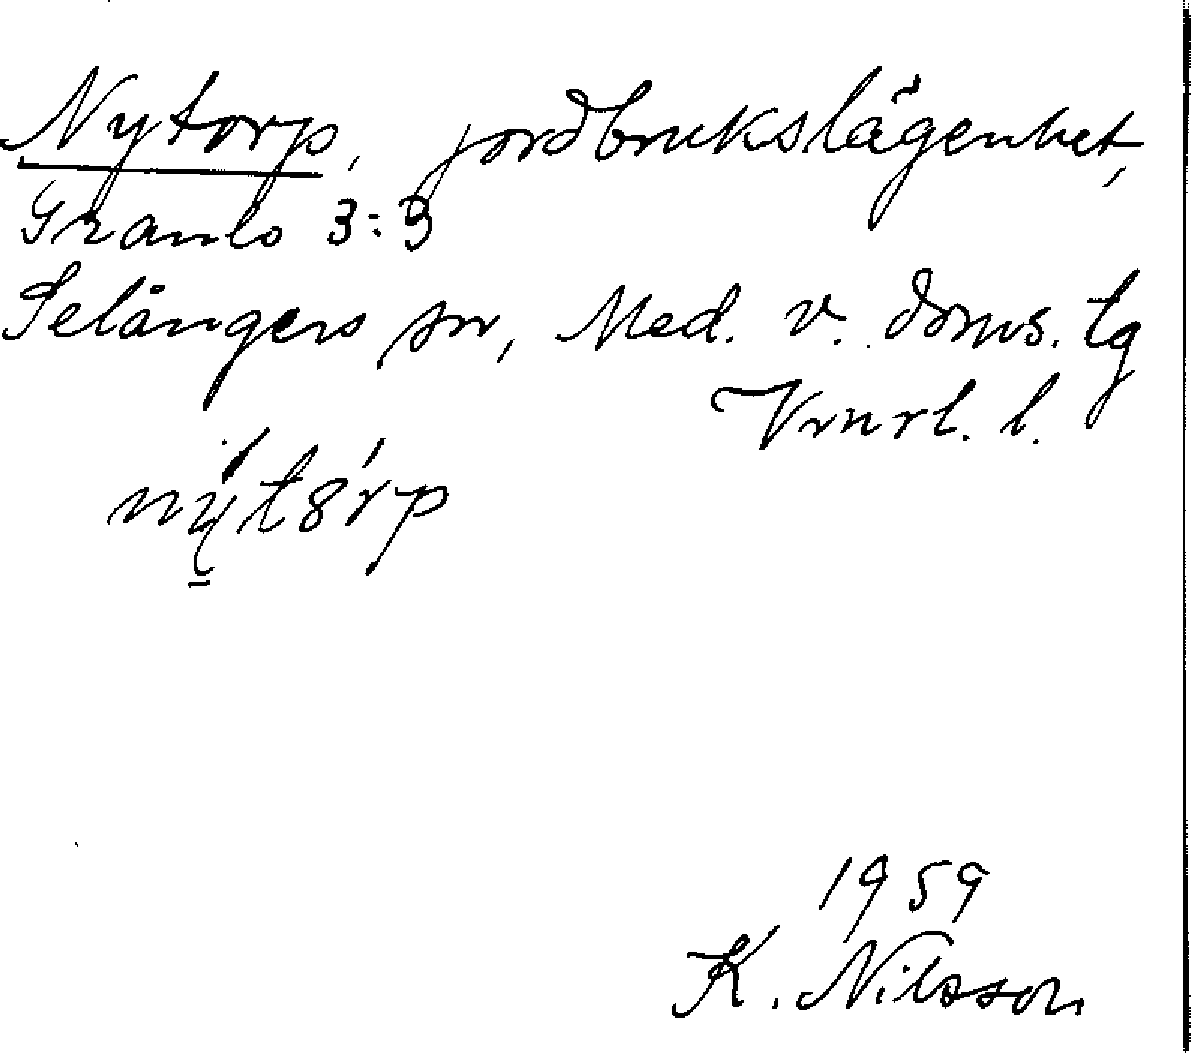 Nytorp, jordbrukslägenhet,
Granlo 3:3
Selångers sn, Med. v. doms. tg
Vrnrl. l.
nýtórp
1959
K. Nilsson